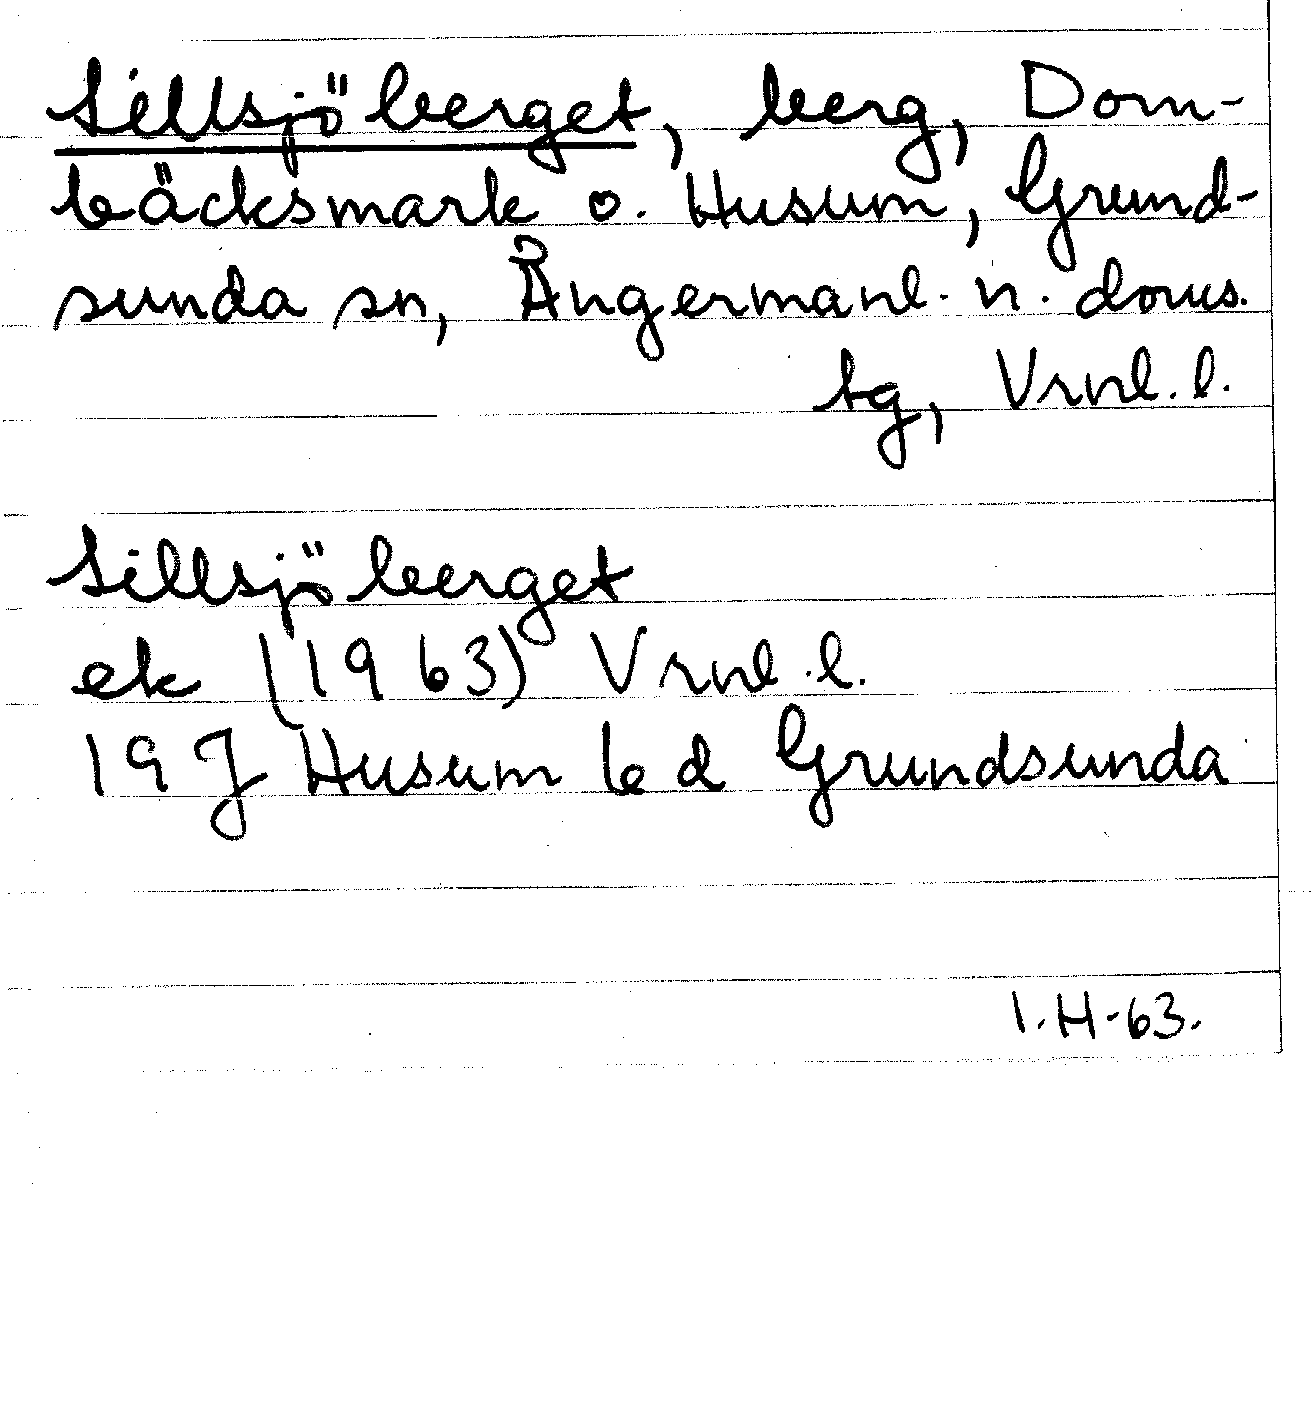 Sillsjöberget, berg, Dom-
bäcksmark o. Husum, Grund-
sunda sn, Ångermanl. n. doms.
tg, Vrnl. l.
Sillsjöberget
ek (1963) Vrnl. l.
19 J Husum b d Grundsunda
1.H-63.